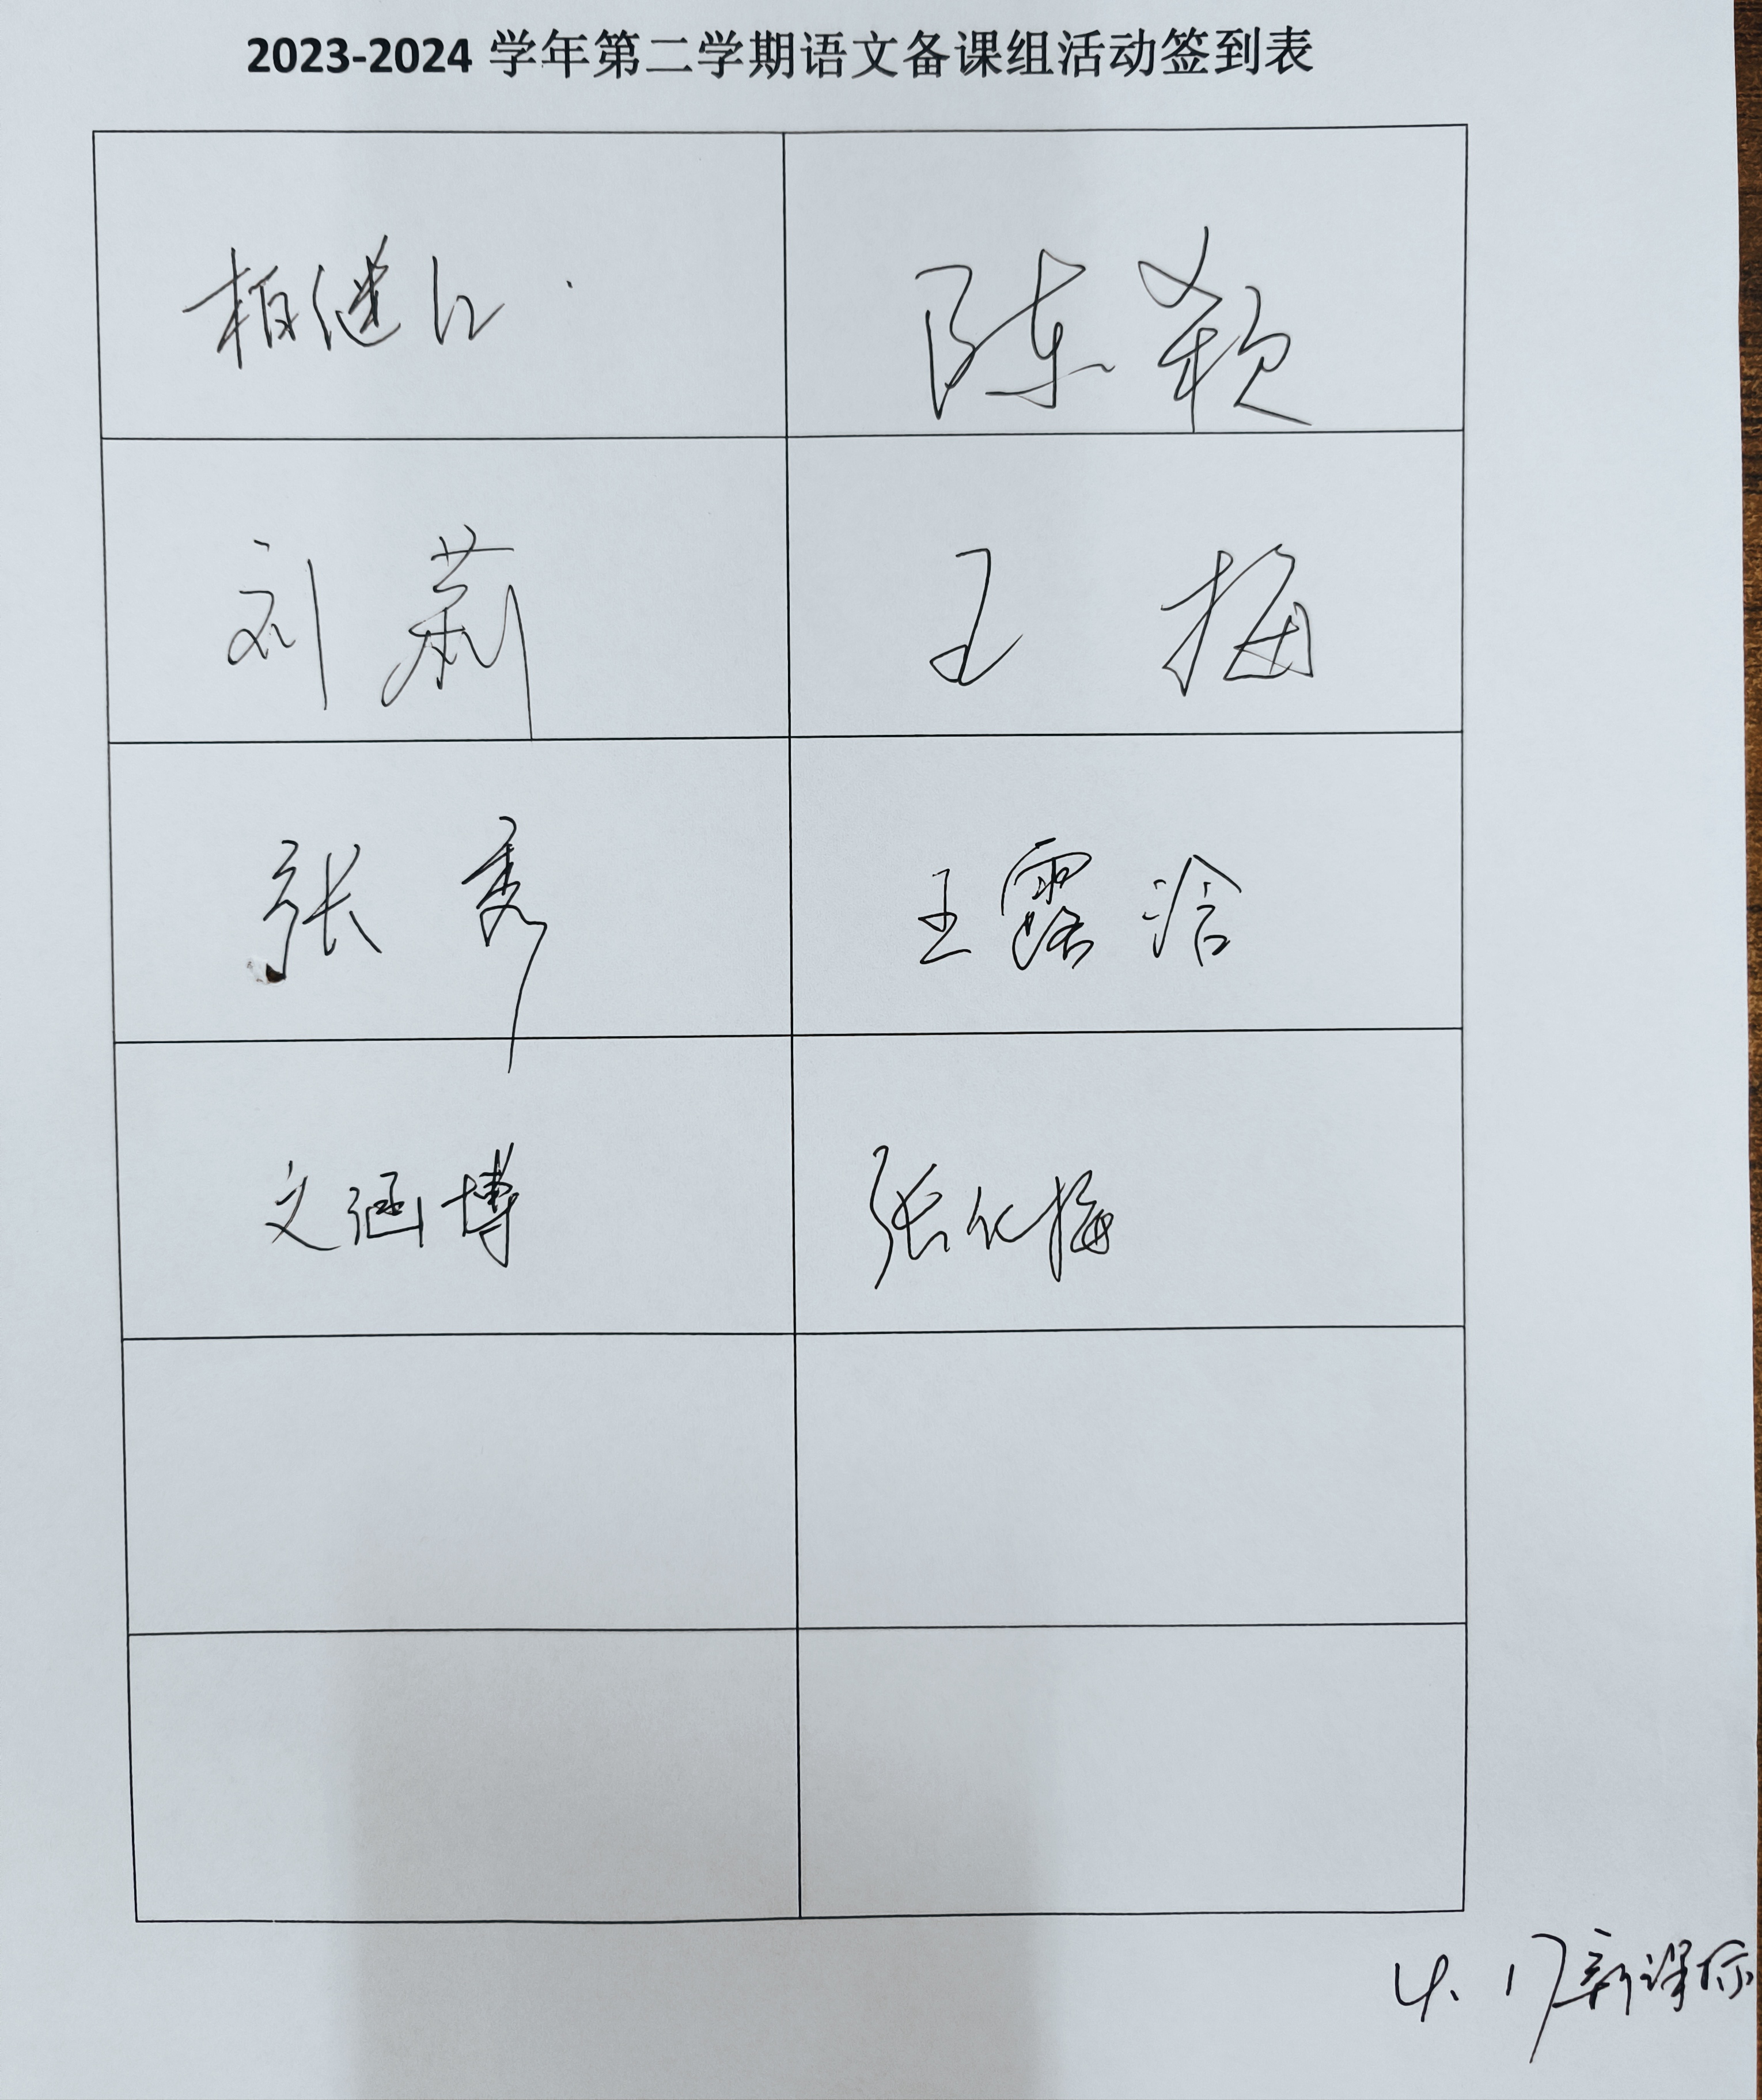 2023-2024 学年第二学期语文备课组活动签到表
柏继江 陈颖
刘莉 王梅
张秀 王露浛
文涵博 张化梅
4.17新课标